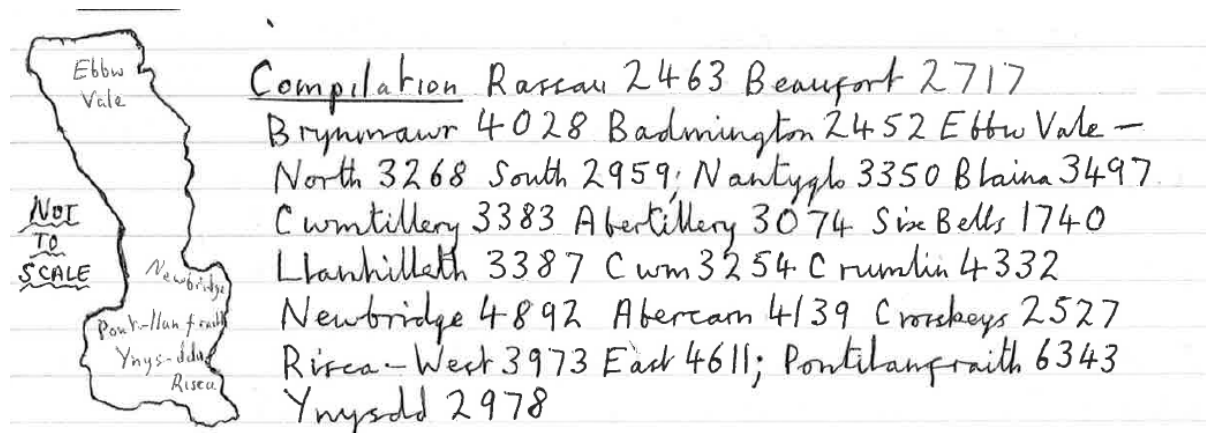 Ebbw
Vale
NOT
TO
SCALE
Newbridge
Pont-llanfraith
Ynys-ddu
Risca
Compilation Rassau 2463 Beaufort 2717
Brynmawr 4028 Badmington 2452 Ebbw Vale –
North 3268 South 2959; Nantyglo 3350 Blaina 3497
Cwmtillery 3383 Abertillery 3074 Six Bells 1740
Llanhilleth 3387 Cwm 3254 Crumlin 4332
Newbridge 4892 Abercarn 4139 Crosskeys 2527
Risca – West 3973 East 4611; Pontllanfraith 6343
Ynysdd 2978